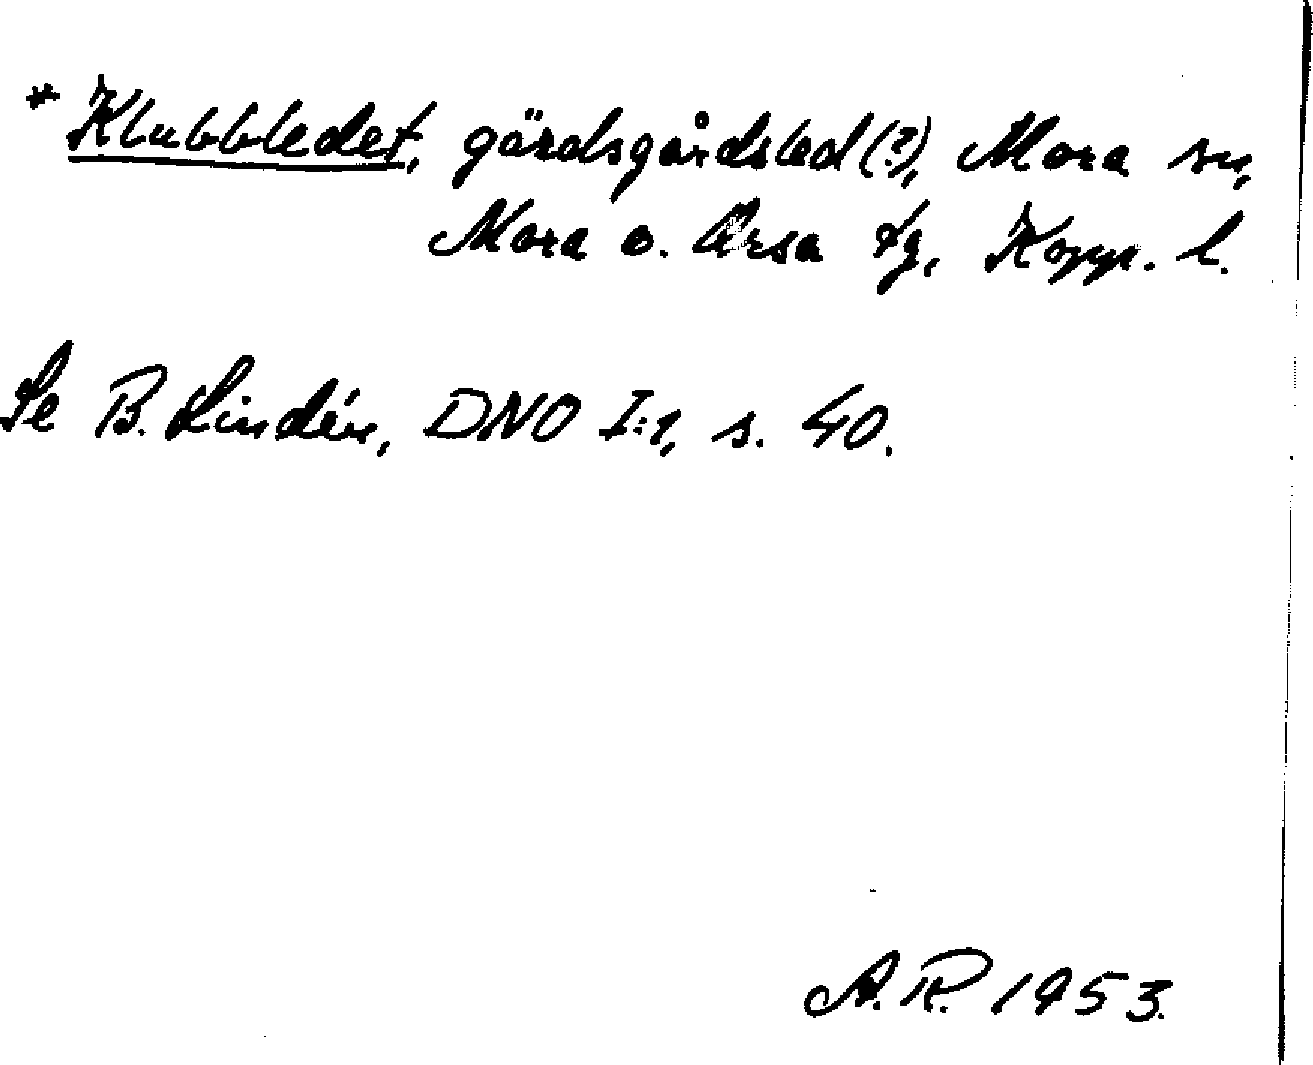 * Klubbledet, gärdsgårdsled(?), Mora sn,
Mora o. Orsa tg, Kopp. l.
Se B. Lindén, DNO I:1, s. 40.
A.R. 1953.